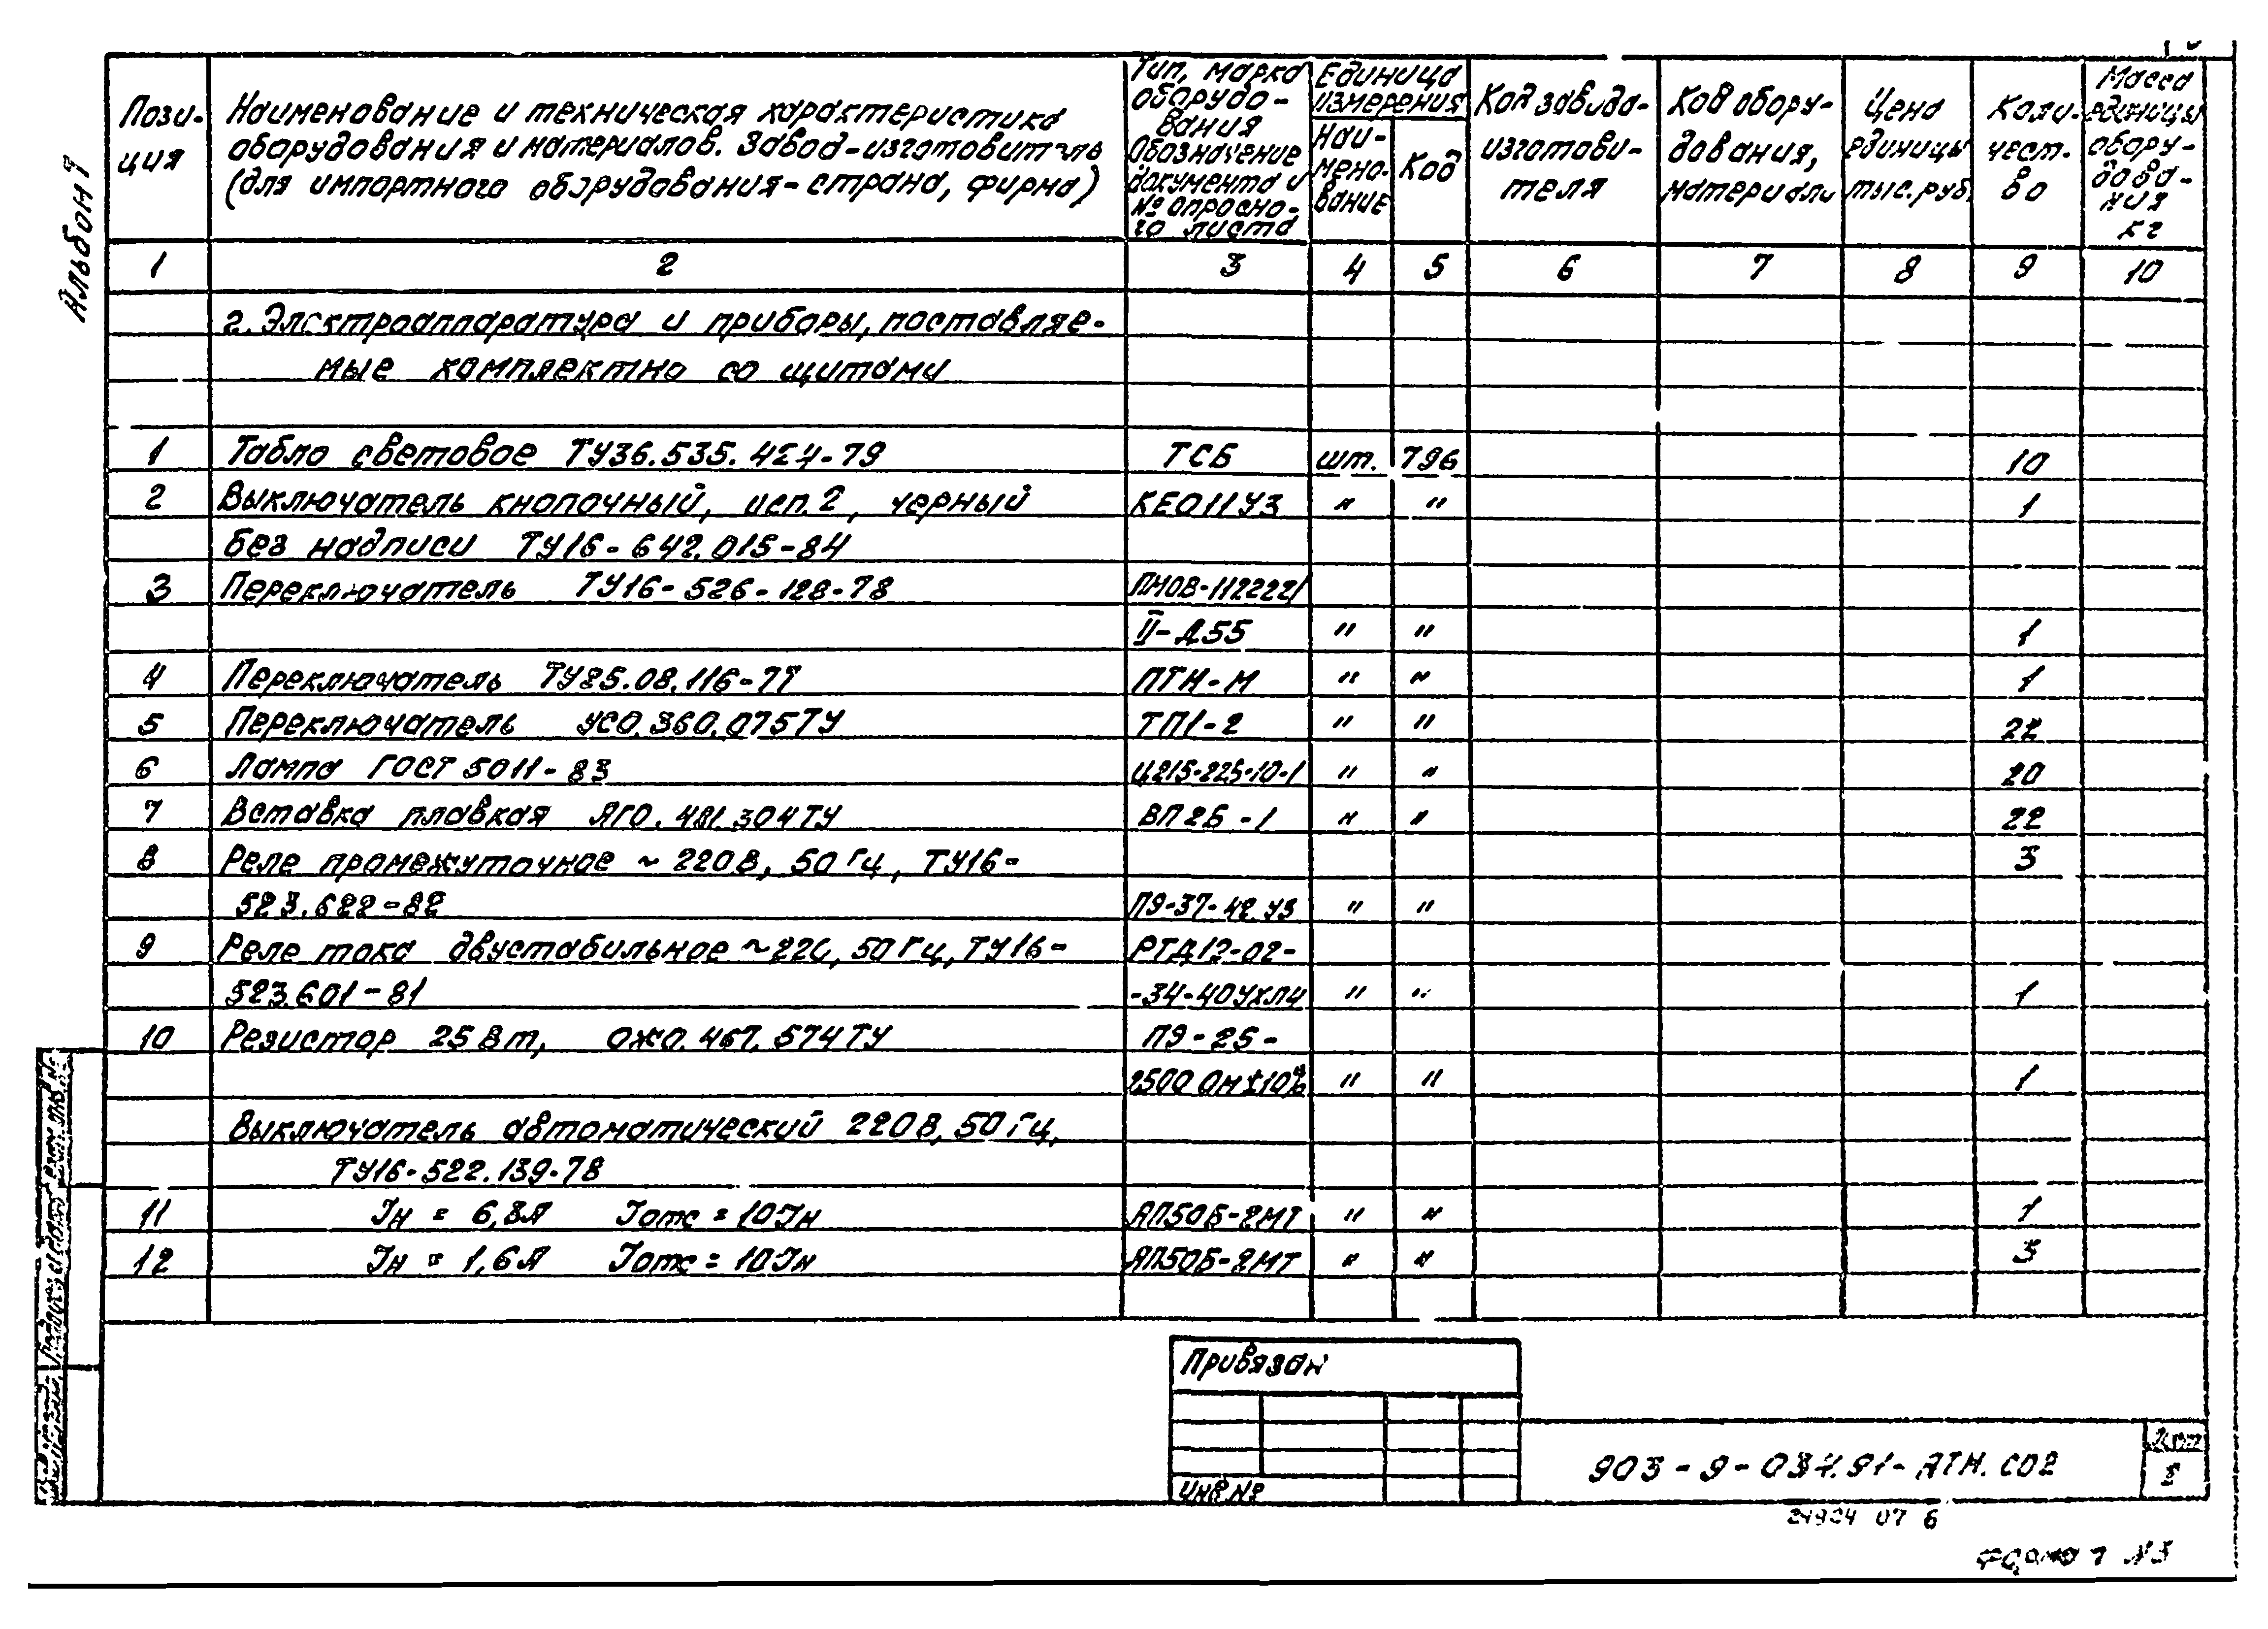 Альбом 7
Пози-
ция
Наименование и техническая характеристика
оборудования и материалов. Завод-изготовитель
(для импортного оборудования-страна, фирма)
Тип, марка
оборудо-
вания
Обозначение
документа и
№ опросно-
го листа
Единица
измерения
Наи-
мено-
вание
Код
Код завода-
изготови-
теля
Код обору-
дования,
материала
Цена
единицы
тыс.руб.
Коли-
чест-
во
Масса
единицы
обору-
дова-
ния
кг
1 2 3 4 5 6 7 8 9 10
2. Электроаппаратура и приборы, поставляе-
мые комплектно со щитами
1 Табло световое ТУ36.535.424-79 ТСБ шт. 796 10
2 Выключатель кнопочный, исп. 2, черный КЕ011У3 " " 1
без надписи ТУ16-642.015-84
3 Переключатель ТУ16-526-128-78 ПМОВ-112222/
II-Д55 " " 1
4 Переключатель ТУ25.08.116-77 ПТН-М " " 1
5 Переключатель УСО.360.075ТУ ТП1-2 " " 22
6 Лампа ГОСТ 5011-83 Ц215-225-10-1 " " 20
7 Вставка плавкая АГО.481.304ТУ ВП2Б-1 " " 22
8 Реле промежуточное ~ 220В, 50 Гц, ТУ16- 3
523.622-82 ПЭ-37-42.У3 " "
9 Реле тока двустабильное ~220, 50 Гц, ТУ16- РТД12-02-
523.601-81 -34-40УХЛ4 " " 1
10 Резистор 25 Вт, ОЖО.467.574ТУ ПЭ-25-
2500 Ом±10% " " 1
Выключатель автоматический 220В, 50 Гц,
ТУ16-522.139-78
11 Iн = 6,3А Iотс = 10Iн АП50Б-2МТ " " 1
12 Iн = 1,6А Iотс = 10Iн АП50Б-2МТ " " 3
Привязан
Инв.№
903-9-034.91-АТМ.СО2
Лист
5
24924 07 6
Формат А3